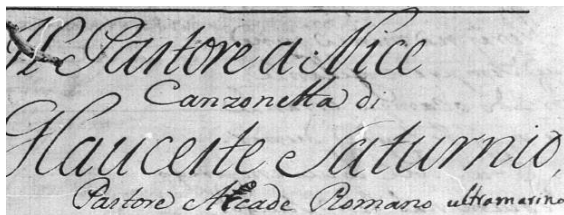 Il Pastore a Nice
Canzonetta di
Glauceste Saturnio,
Pastore Arcade Romano ultramarino